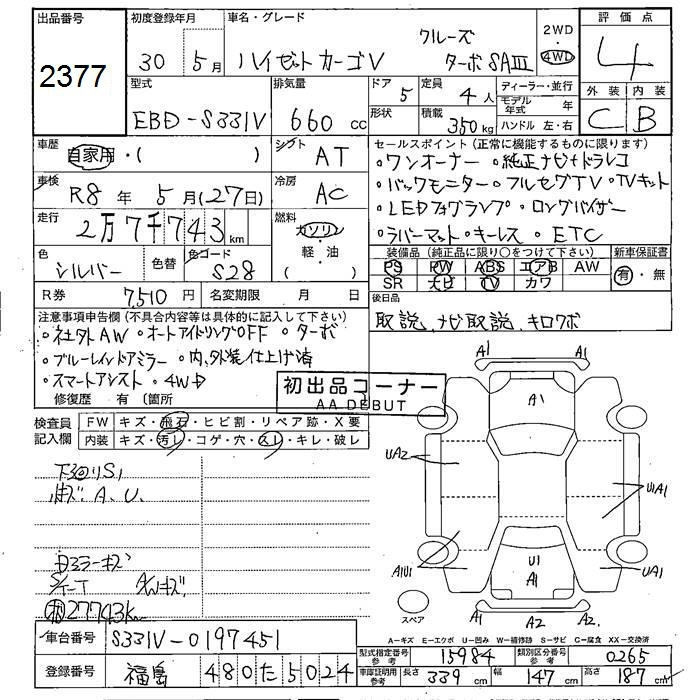 出品番号 2377
初度登録年月 30年 5月
車名・グレード ハイゼットカーゴV クルーズターボSAⅢ
2WD
4WD
評価点 4
外装 C 内装 B
型式 EBD-S331V
排気量 660 cc
ドア 5
形状
定員 4人
積載 350kg
ディーラー・並行
モデル年式 年
ハンドル 左・右
車歴 自家用・( )
シフト AT
車検 R8年 5月(27日)
冷房 AC
走行 2万7千743km
燃料 ガソリン・軽・油 ( )
色 シルバー
色替
色コード S28
R券 7,510円
名変期限 月 日
セールスポイント(正常に機能するものに限ります)
・ワンオーナー ・純正ナビ+ドラレコ
・バックモニター ・フルセグTV ・TVキット
・LEDフォグランプ ・ロングバイザー
・ラバーマット ・キーレス ・ETC
装備品(純正品に限り〇をつけて下さい)
PS PW ABS エアB AW
SR ナビ TV カワ
新車保証書 有・無
後日品
取説、ナビ取説、キロクボ
注意事項申告欄(不具合内容等は具体的に記入して下さい)
・社外AW ・オートアイドリングOFF ・ターボ
・ブルーレインドアミラー ・内、外装仕上げ済
・スマートアシスト ・4WD
修復歴 有( )箇所
初出品コーナー
AA DEBUT
検査員記入欄
FW キズ・飛石・ヒビ割・リペア跡・X要
内装 キズ・汚レ・コゲ・穴・スレ・キレ・破レ
下回りS1
キズ A、U、
ミラーキズ
A/Wキズ
27743K
A1 A1
A1
UA2
U1A1
A1U1
U1
A1
UA1
A1 A2 A2
スペア
A-キズ E-エクボ U-凹み W-補修跡 S-サビ C-腐食 XX-交換済
車台番号 S331V-0197451
登録番号 福島 480 た 5024
型式指定番号 参考 15984
類別区分番号 参考 0265
車庫証明用 参考 長さ 339cm 幅 147cm 高さ 187cm